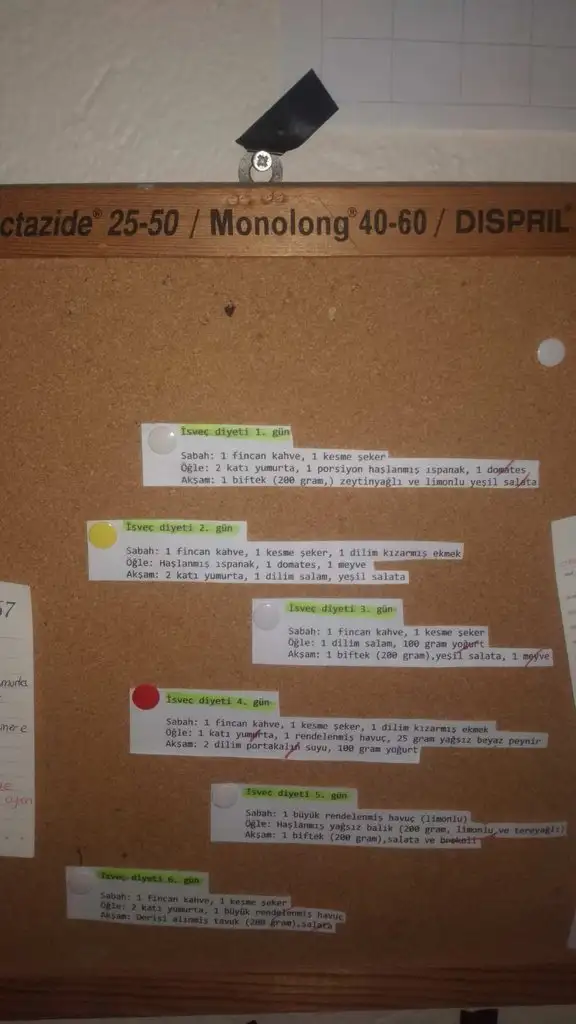 ctazide® 25-50 / Monolong® 40-60 / DISPRIL®
İsveç diyeti 1. gün
Sabah: 1 fincan kahve, 1 kesme şeker
Öğle: 2 katı yumurta, 1 porsiyon haşlanmış ıspanak, 1 domates
Akşam: 1 biftek (200 gram,) zeytinyağlı ve limonlu yeşil salata
İsveç diyeti 2. gün
Sabah: 1 fincan kahve, 1 kesme şeker, 1 dilim kızarmış ekmek
Öğle: Haşlanmış ıspanak, 1 domates, 1 meyve
Akşam: 2 katı yumurta, 1 dilim salam, yeşil salata
İsveç diyeti 3. gün
Sabah: 1 fincan kahve, 1 kesme şeker
Öğle: 1 dilim salam, 100 gram yoğurt
Akşam: 1 biftek (200 gram),yeşil salata, 1 meyve
İsveç diyeti 4. gün
Sabah: 1 fincan kahve, 1 kesme şeker, 1 dilim kızarmış ekmek
Öğle: 1 katı yumurta, 1 rendelenmiş havuç, 25 gram yağsız beyaz peynir
Akşam: 2 dilim portakalın suyu, 100 gram yoğurt
İsveç diyeti 5. gün
Sabah: 1 büyük rendelenmiş havuç (limonlu)
Öğle: Haşlanmış yağsız balık (200 gram, limonlu ve tereyağlı)
Akşam: 1 biftek (200 gram),salata ve brokoli
İsveç diyeti 6. gün
Sabah: 1 fincan kahve, 1 kesme şeker
Öğle: 2 katı yumurta, 1 büyük rendelenmiş havuç
Akşam: Derisi alınmış tavuk (200 gram),salata
57